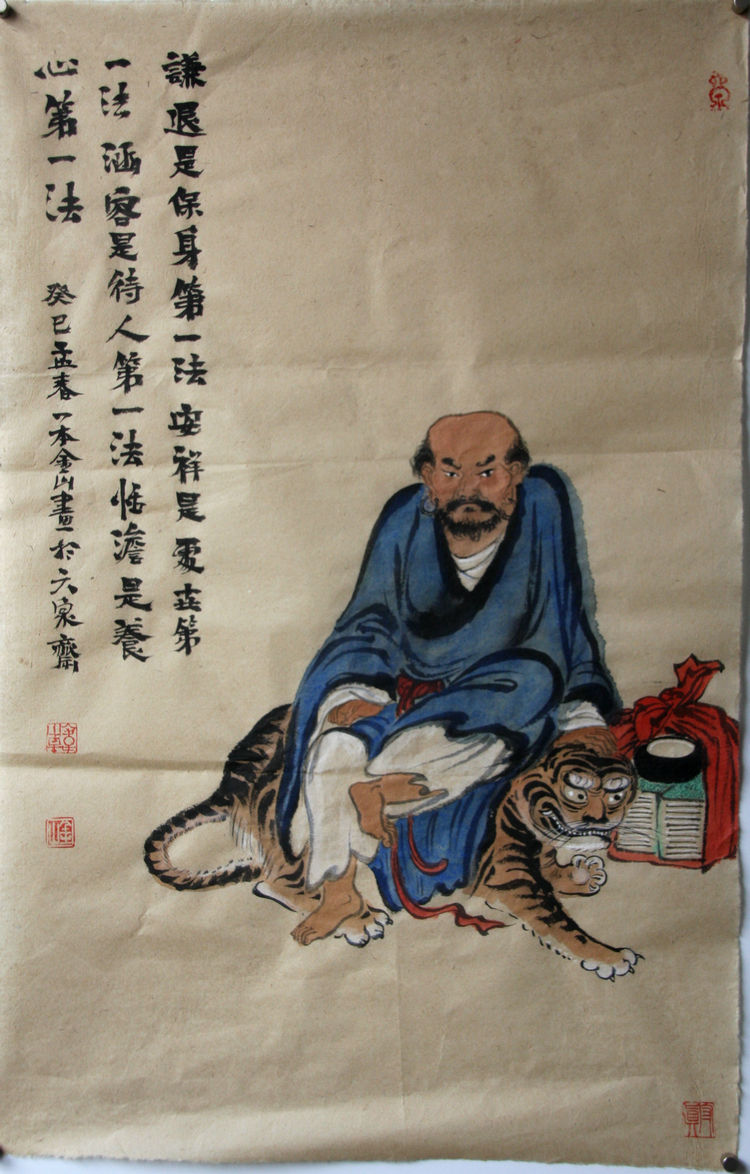 謙退是保身第一法安祥是處世第
一法涵容是待人第一法恬澹是養
心第一法
癸巳孟春一本金山畫於六泉齋